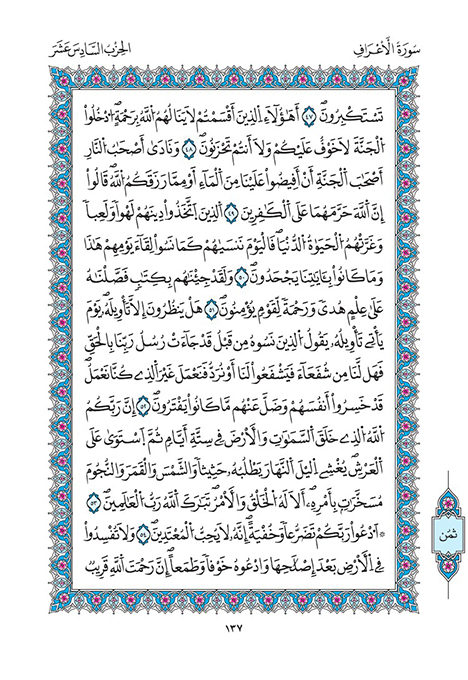 سورة الأعراف
الحزب السادس عشر
تَسْتَكْبِرُونَ ٤٧ أَهَٰؤُلَاءِ الذِينَ أَقْسَمْتُمْ لَا يَنَالُهُمُ اللَّهُ بِرَحْمَةٍ ادْخُلُواْ
الْجَنَّةَ لَا خَوْفٌ عَلَيْكُمْ وَلَا أَنتُمْ تَحْزَنُونَ ٤٨ وَنَادَىٰ أَصْحَٰبُ النَّارِ
أَصْحَٰبَ الْجَنَّةِ أَنْ أَفِيضُواْ عَلَيْنَا مِنَ الْمَاءِ اوْ مِمَّا رَزَقَكُمُ اللَّهُ قَالُواْ
إِنَّ اللَّهَ حَرَّمَهُمَا عَلَى الْكَٰفِرِينَ ٤٩ الذِينَ اتَّخَذُواْ دِينَهُمْ لَهْواً وَلَعِباً
وَغَرَّتْهُمُ الْحَيَوٰةُ الدُّنْيَا فَالْيَوْمَ نَنسَيٰهُمْ كَمَا نَسُواْ لِقَاءَ يَوْمِهِمْ هَٰذَا
وَمَا كَانُواْ بِـَٔايَٰتِنَا يَجْحَدُونَ ٥٠ وَلَقَدْ جِئْنَٰهُم بِكِتَٰبٍ فَصَّلْنَٰهُ
عَلَىٰ عِلْمٍ هُدىً وَرَحْمَةً لِّقَوْمٍ يُؤْمِنُونَ ٥١ هَلْ يَنظُرُونَ إِلَّا تَأْوِيلَهُۥ يَوْمَ
يَأْتِي تَأْوِيلُهُۥ يَقُولُ الذِينَ نَسُوهُ مِن قَبْلُ قَدْ جَاءَتْ رُسُلُ رَبِّنَا بِالْحَقِّ
فَهَل لَّنَا مِن شُفَعَاءَ فَيَشْفَعُواْ لَنَا أَوْ نُرَدُّ فَنَعْمَلَ غَيْرَ الذِے كُنَّا نَعْمَلُ
قَدْ خَسِرُواْ أَنفُسَهُمْ وَضَلَّ عَنْهُم مَّا كَانُواْ يَفْتَرُونَ ٥٢ إِنَّ رَبَّكُمُ
اللَّهُ الذِے خَلَقَ السَّمَٰوَٰتِ وَالْأَرْضَ فِے سِتَّةِ أَيَّامٍ ثُمَّ اسْتَوَىٰ عَلَى
الْعَرْشِ يُغْشِے اليْلَ النَّهَارَ يَطْلُبُهُۥ حَثِيثاً وَالشَّمْسَ وَالْقَمَرَ وَالنُّجُومَ
مُسَخَّرَٰتٍ بِأَمْرِهِۦ أَلَا لَهُ الْخَلْقُ وَالْأَمْرُ تَبَٰرَكَ اللَّهُ رَبُّ الْعَٰلَمِينَ ٥٣
* ادْعُواْ رَبَّكُمْ تَضَرُّعاً وَخُفْيَةً إِنَّهُۥ لَا يُحِبُّ الْمُعْتَدِينَ ٥٤ وَلَا تُفْسِدُواْ
فِے الْأَرْضِ بَعْدَ إِصْلَٰحِهَا وَادْعُوهُ خَوْفاً وَطَمَعاً إِنَّ رَحْمَتَ اللَّهِ قَرِيبٌ
ثمن
١٣٧